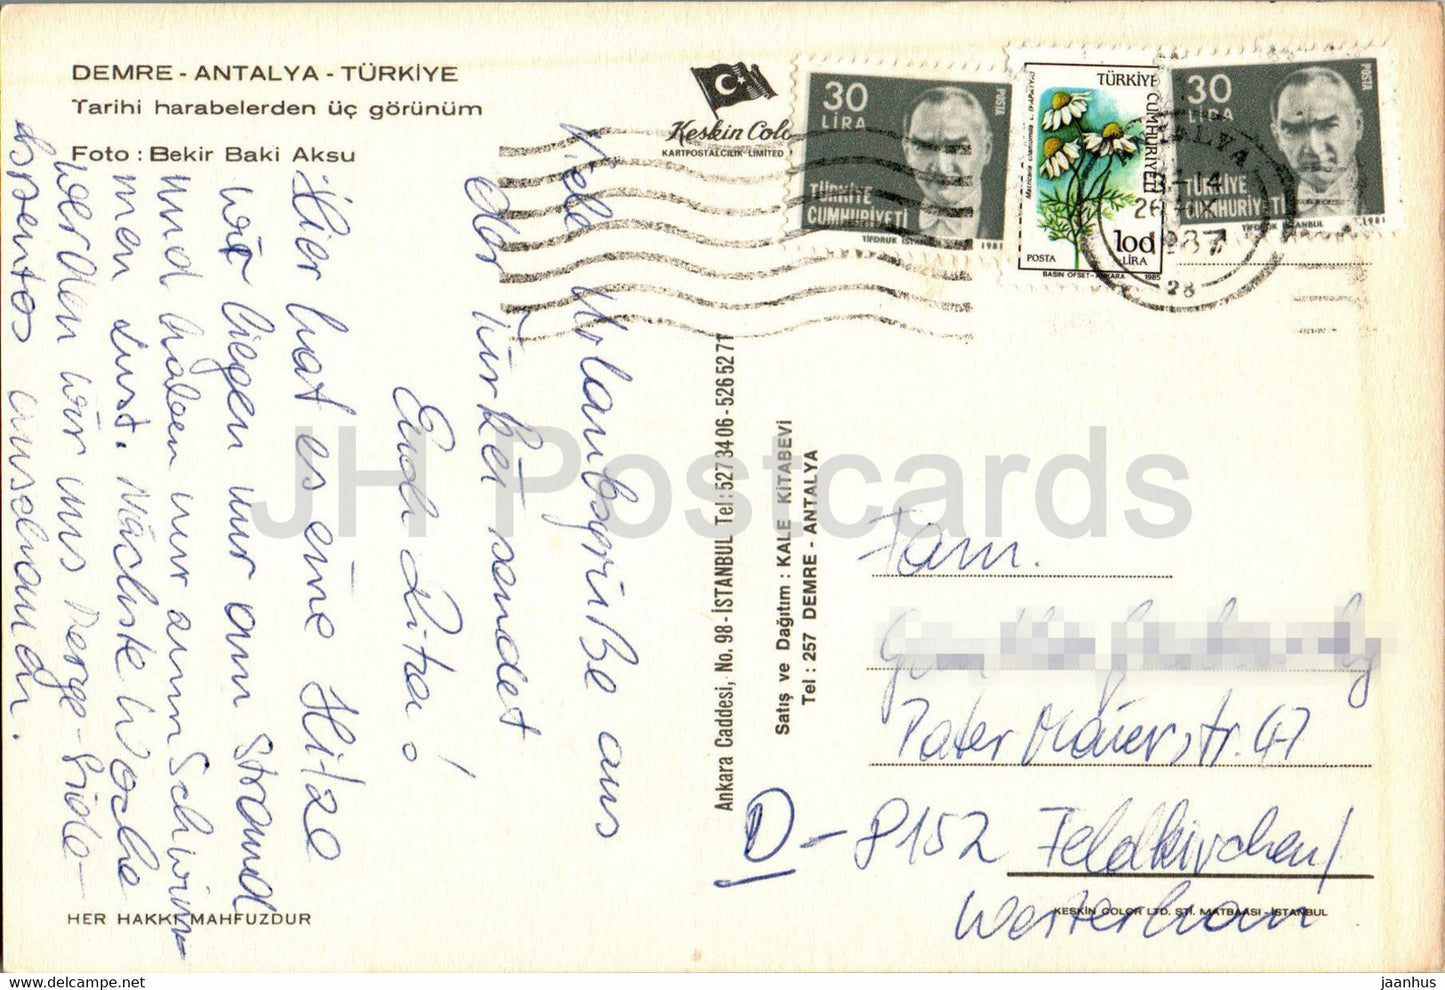 DEMRE - ANTALYA - TÜRKİYE
Tarihi harabelerden üç görünüm
Foto : Bekir Baki Aksu
Keskin Colo
KARTPOSTALCILIK LIMITED
30
LİRA
POSTA
TÜRKİYE
CUMHURİYETİ
TİFDRUK İSTANBUL
1981
TÜRKİYE CUMHURİYETİ
Matricaria chamomilla L.
100
LİRA
POSTA
BASIN OFSET-ANKARA 1985
30
LİRA
POSTA
TÜRKİYE
CUMHURİYETİ
TİFDRUK İSTANBUL
1981
ANTALYA
14
26 IX
1987
28
Viele Urlaubsgrüße aus
der Türkei sendet
Euch Lita!
Hier hat es eine Hitze
wir liegen nur am Strand
und haben nur zum Schwim-
men Lust. Nächste Woche
werden wir uns Perge - Side -
Aspendos anschauen.
Ankara Caddesi, No. 98 - İSTANBUL Tel : 527 34 06 - 526 52 71
Satış ve Dağıtım : KALE KİTABEVİ
Tel : 257 DEMRE - ANTALYA
Fam.
Pater Mayer, str. 47
D - 8152 Feldkirchen/
Westerham
HER HAKKI MAHFUZDUR
KESKİN COLOR LTD. ŞTİ. MATBAASI - İSTANBUL
JH Postcards
https://www.delcampe.net
jaanhus